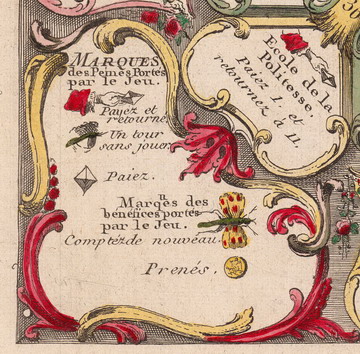 MARQUES
des Peines Portés
par le Jeu.
Payez et
retourne.
Un tour
sans jouer
Païez.
II
Marqēs des
bénéfices portés
par le Jeu.
Comptéz de nouveau.
Prenés.
Ecole de la
Politesse.
Païéz 1. et
retournéz à 11.